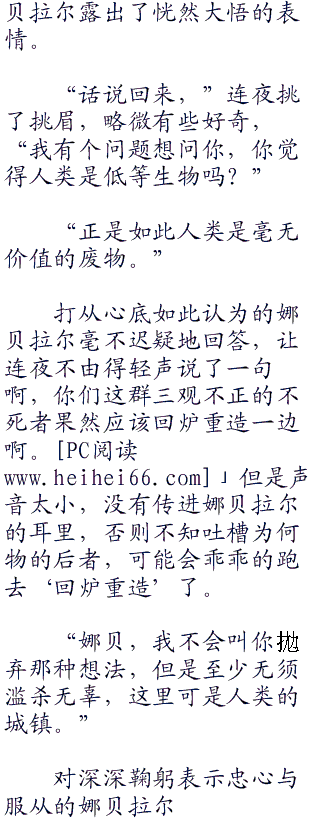 贝拉尔露出了恍然大悟的表
情。
“话说回来，”连夜挑
了挑眉，略微有些好奇，
“我有个问题想问你，你觉
得人类是低等生物吗？”
“正是如此人类是毫无
价值的废物。”
打从心底如此认为的娜
贝拉尔毫不迟疑地回答，让
连夜不由得轻声说了一句
啊，你们这群三观不正的不
死者果然应该回炉重造一边
啊。[PC阅读
www.heihei66.com]」但是声
音太小，没有传进娜贝拉尔
的耳里，否则不知吐槽为何
物的后者，可能会乖乖的跑
去‘回炉重造’了。
“娜贝，我不会叫你抛
弃那种想法，但是至少无须
滥杀无辜，这里可是人类的
城镇。”
对深深鞠躬表示忠心与
服从的娜贝拉尔